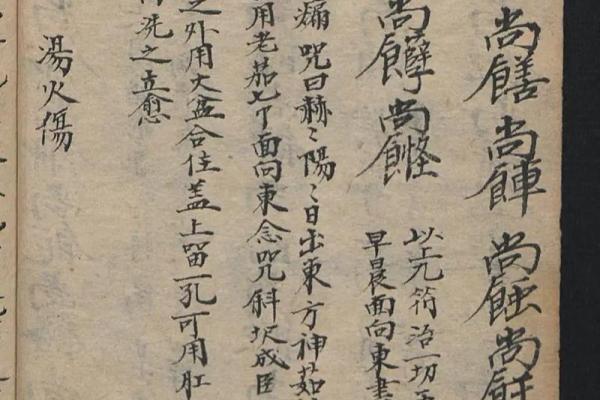 尚饍尚尚蝕尚
尚尚
以上九符治一切
早晨面向東書
咒曰赫〻陽〻日出東方神茄
用老茄七个面向東念咒斜坎成
之外用大盆合住蓋上留一孔可用肛
洗之立愈
湯火傷